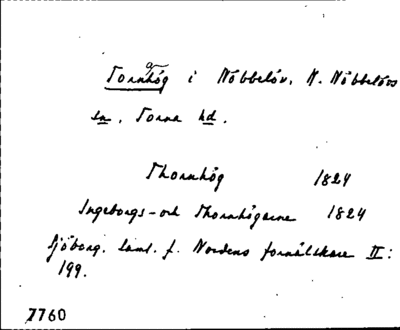 Tornhög i Nöbbelöv, N. Nöbbelövs
sn, Torna hd.
Thornhög 1824
Ingeborgs- och Thornhögarne 1824
Sjöborg. Saml. f. Nordens fornälskare II:
199.
7760